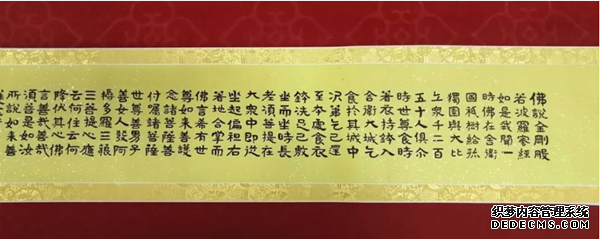 佛說金剛般
若波羅蜜經
如是我聞一
時佛在舍衛
國祇樹給孤
獨園與大比
丘眾千二百
五十人俱介
時世尊食時
著衣持鉢入
舍衛大城乞
食於其城中
次第乞已還
至本處食衣
鉢洗足已敷
坐而坐時長
老須菩提在
大眾中即從
坐起偏袒右
著地合掌而
佛言希有世
尊如來善護
念諸菩薩善
付囑諸菩薩
世尊善男
善女人發阿
耨多羅三藐
三菩提心應
云何住云何
降伏其心佛
言善哉善哉
須菩提如汝
所說如來善
织梦内容管理系统
DEDECMS.COM